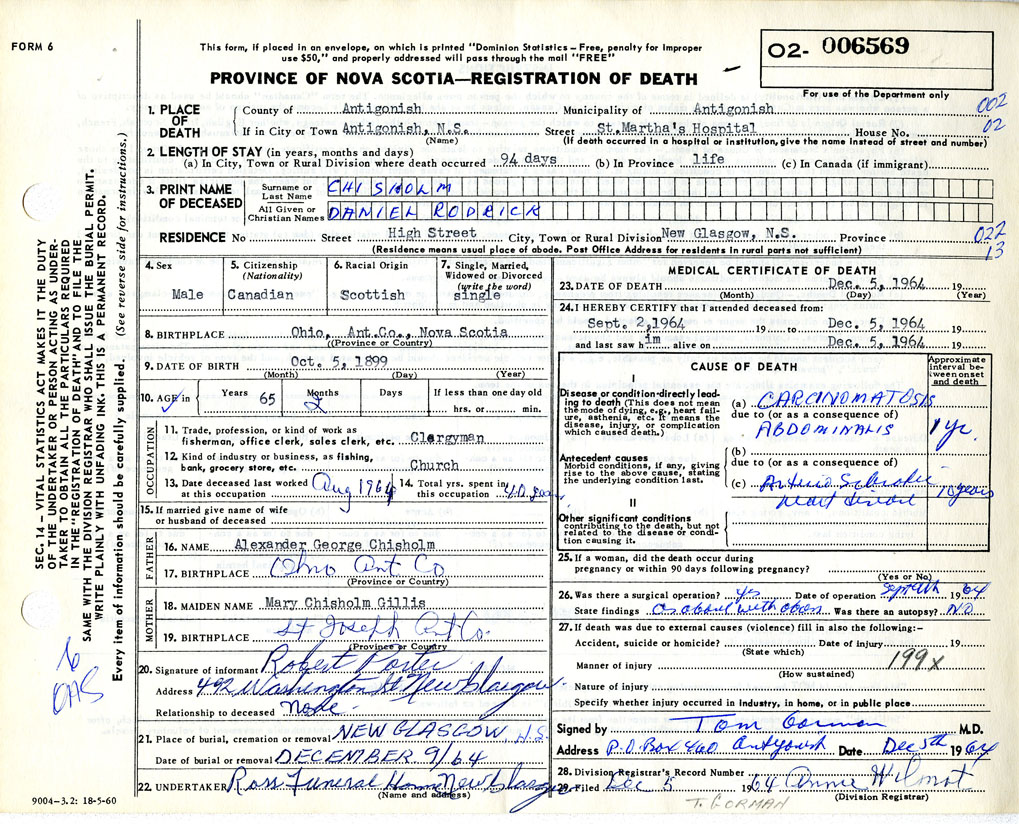 FORM 6
This form, if placed in an envelope, on which is printed "Dominion Statistics – Free, penalty for improper
use $50," and properly addressed will pass through the mail "FREE"
PROVINCE OF NOVA SCOTIA—REGISTRATION OF DEATH
02- 006569
For use of the Department only
002
02
1. PLACE OF DEATH
County of Antigonish Municipality of Antigonish
If in City or Town Antigonish, N.S. Street St.Martha's Hospital House No.
(Name) (If death occurred in a hospital or institution, give the name instead of street and number)
2. LENGTH OF STAY (in years, months and days)
(a) In City, Town or Rural Division where death occurred 94 days (b) In Province life (c) In Canada (if immigrant)
3. PRINT NAME OF DECEASED
Surname or Last Name CHISHOLM
All Given or Christian Names DANIEL RODRICK
RESIDENCE No Street High Street City, Town or Rural Division New Glasgow, N.S. Province 022
(Residence means usual place of abode. Post Office Address for residents in rural parts not sufficient) 13
4. Sex Male
5. Citizenship (Nationality) Canadian
6. Racial Origin Scottish
7. Single, Married, Widowed or Divorced (write the word) single
8. BIRTHPLACE Ohio, Ant.Co., Nova Scotia
(Province or Country)
9. DATE OF BIRTH Oct. 5, 1899
(Month) (Day) (Year)
10. AGE in Years 65 Months 2 Days If less than one day old
hrs. or min.
OCCUPATION
11. Trade, profession, or kind of work as
fisherman, office clerk, sales clerk, etc. Clergyman
12. Kind of industry or business, as fishing,
bank, grocery store, etc. Church
13. Date deceased last worked at this occupation Aug 1964
14. Total yrs. spent in this occupation 40
15. If married give name of wife
or husband of deceased
FATHER
16. NAME Alexander George Chisholm
17. BIRTHPLACE Ohio Ant Co
(Province or Country)
MOTHER
18. MAIDEN NAME Mary Chisholm Gillis
19. BIRTHPLACE St Joseph Ant Co.
(Province or Country)
20. Signature of informant Robert Porter
Address 492 Washington St New Glasgow.
Relationship to deceased None.
21. Place of burial, cremation or removal NEW GLASGOW N.S.
Date of burial or removal DECEMBER 9/64
22. UNDERTAKER Ross Funeral Home New Glasgow
(Name and address)
9004-3.2: 18-5-60
MEDICAL CERTIFICATE OF DEATH
23. DATE OF DEATH Dec. 5, 1964
(Month) (Day) (Year)
24. I HEREBY CERTIFY that I attended deceased from:
Sept. 2,1964 19 to Dec. 5, 1964 19
and last saw him alive on Dec. 5, 1964 19
CAUSE OF DEATH
Approximate interval between onset and death
I
Disease or condition directly leading to death (This does not mean the mode of dying, e.g., heart failure, asthenia, etc. It means the disease, injury, or complication which caused death.)
(a) CARCINOMATOSIS
due to (or as a consequence of)
ABDOMINALIS 1 yr.
Antecedent causes
Morbid conditions, if any, giving rise to the above cause, stating the underlying condition last.
(b)
due to (or as a consequence of)
(c) Arterio Sclerotic
heart disease 10 years
II
Other significant conditions
contributing to the death, but not related to the disease or condition causing it.
25. If a woman, did the death occur during
pregnancy or within 90 days following pregnancy?
(Yes or No)
26. Was there a surgical operation? yes Date of operation 1964
State findings as above with Was there an autopsy? NO
27. If death was due to external causes (violence) fill in also the following:-
Accident, suicide or homicide? Date of injury 19
(State which)
199X
Manner of injury
(How sustained)
Nature of injury
Specify whether injury occurred in Industry, in home, or in public place
Signed by Tom Gorman M.D.
Address P.O. Box 460 Antigonish Date Dec 5th 1964
28. Division Registrar's Record Number
29. Filed Dec 5 1964 Anne Wilmot
(Division Registrar)
T. GORMAN
SEC. 14 – VITAL STATISTICS ACT MAKES IT THE DUTY
OF THE UNDERTAKER OR PERSON ACTING AS UNDER-
TAKER TO OBTAIN ALL THE PARTICULARS REQUIRED
IN THE "REGISTRATION OF DEATH" AND TO FILE THE
SAME WITH THE DIVISION REGISTRAR WHO SHALL ISSUE THE BURIAL PERMIT.
WRITE PLAINLY WITH UNFADING INK. THIS IS A PERMANENT RECORD.
Every item of information should be carefully supplied. (See reverse side for instructions.)